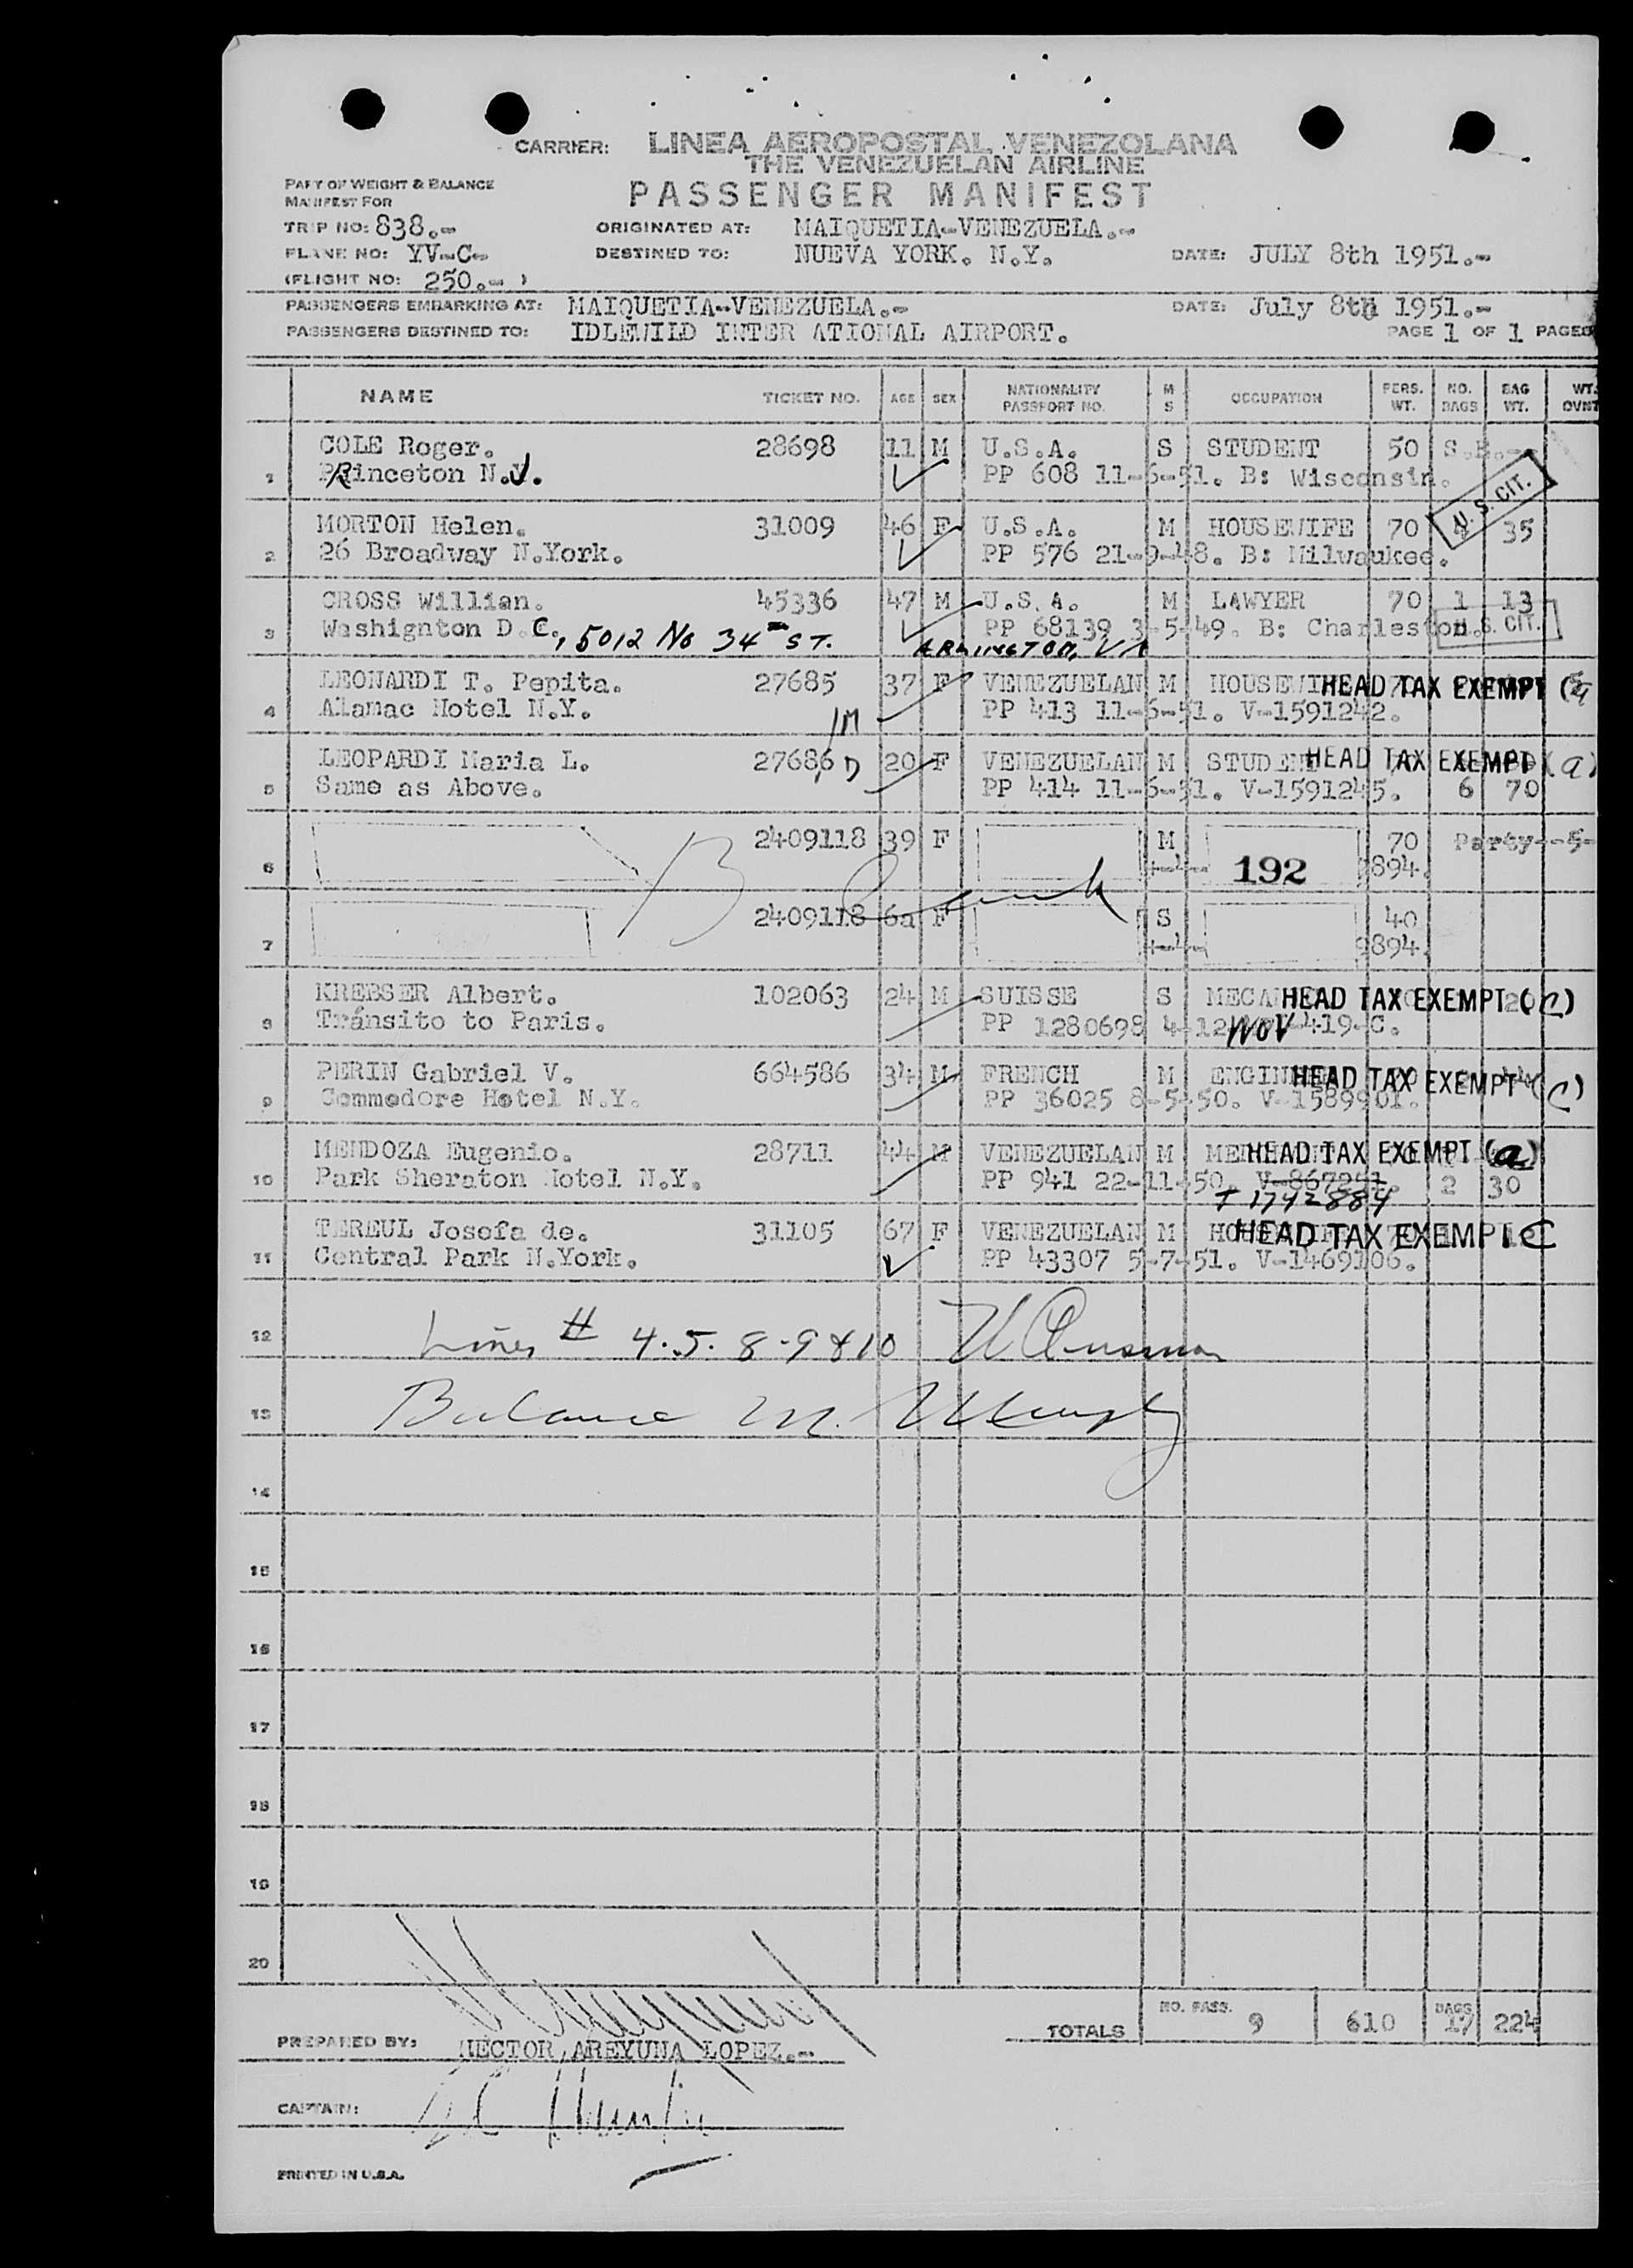 CARRIER: LINEA AEROPOSTAL VENEZOLANA
THE VENEZUELAN AIRLINE
PART OF WEIGHT & BALANCE
MANIFEST FOR
PASSENGER MANIFEST
TRIP NO: 838.- ORIGINATED AT: MAIQUETIA-VENEZUELA.-
PLANE NO: YV-C- DESTINED TO: NUEVA YORK. N.Y. DATE: JULY 8th 1951.-
(FLIGHT NO: 250.- )
PASSENGERS EMBARKING AT: MAIQUETIA-VENEZUELA.- DATE: July 8th 1951.-
PASSENGERS DESTINED TO: IDLEWILD INTER ATIONAL AIRPORT. PAGE 1 OF 1 PAGES
NAME TICKET NO. AGE SEX NATIONALITY PASSPORT NO. M S OCCUPATION PERS. WT. NO. BAGS BAG WT. WT. OVNT
COLE Roger. 28698 11 M U.S.A. S STUDENT 50 S.B.--
1 Princeton N.J. PP 608 11-6-51. B: Wisconsin.
U. S. CIT.
MORTON Helen. 31009 46 F U.S.A. M HOUSEWIFE 70 35
2 26 Broadway N.York. PP 576 21-9-48. B: Milwaukee.
CROSS Willian. 45336 47 M U.S.A. M LAWYER 70 1 13
3 Washignton D.C., 5012 No 34 ST. ARLINGTON, VA PP 68139 3-5-49. B: Charleston. U.S. CIT.
LEONARDI T. Pepita. 27685 37 F VENEZUELAN M HOUSEWIFE HEAD TAX EXEMPT
4 Alamac Hotel N.Y. PP 413 11-6-51. V-1591242.
LEOPARDI Maria L. 27686 20 F VENEZUELAN M STUDENT HEAD TAX EXEMPT (a)
5 Same as Above. PP 414 11-6-51. V-1591245. 6 70
2409118 39 F M 70 Party--5-
6 192 9894.
2409118 6a F S 40
7 9894.
KREBSER Albert. 102063 24 M SUISSE S HEAD TAX EXEMPT (c)
8 Tránsito to Paris. PP 1280698 419-C.
PERIN Gabriel V. 664586 34 M FRENCH M ENGINEER HEAD TAX EXEMPT (c)
9 Commodore Hotel N.Y. PP 36025 8-5-50. V-1589901.
MENDOZA Eugenio. 28711 44 M VENEZUELAN M HEAD TAX EXEMPT (a)
10 Park Sheraton Hotel N.Y. PP 941 22-11-50. V-867251. 2 30
T 1742884
TEREUL Josefa de. 31105 67 F VENEZUELAN M HEAD TAX EXEMPT C
11 Central Park N.York. PP 43307 5-7-51. V-1469106.
12 Lines # 4.5. 8-9 & 10
13 Balance M.
14
15
16
17
18
19
20
TOTALS NO. PASS. 9 610 BAGS 17 224
PREPARED BY: HECTOR AREYUNA LOPEZ.-
CAPTAIN:
PRINTED IN U.S.A.